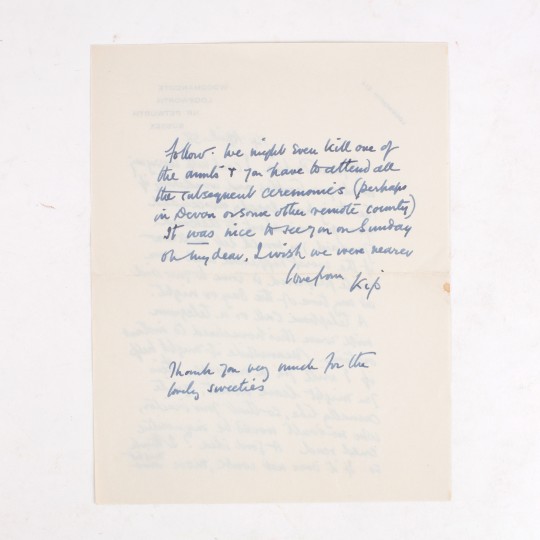 follow. We might even kill one of
the aunts & you have to attend all
the subsequent ceremonies (perhaps
in Devon or some other remote county)
It was nice to see you on Sunday
oh my dear, I wish we were nearer
Love from Kip
Thank you very much for the
lovely sweeties